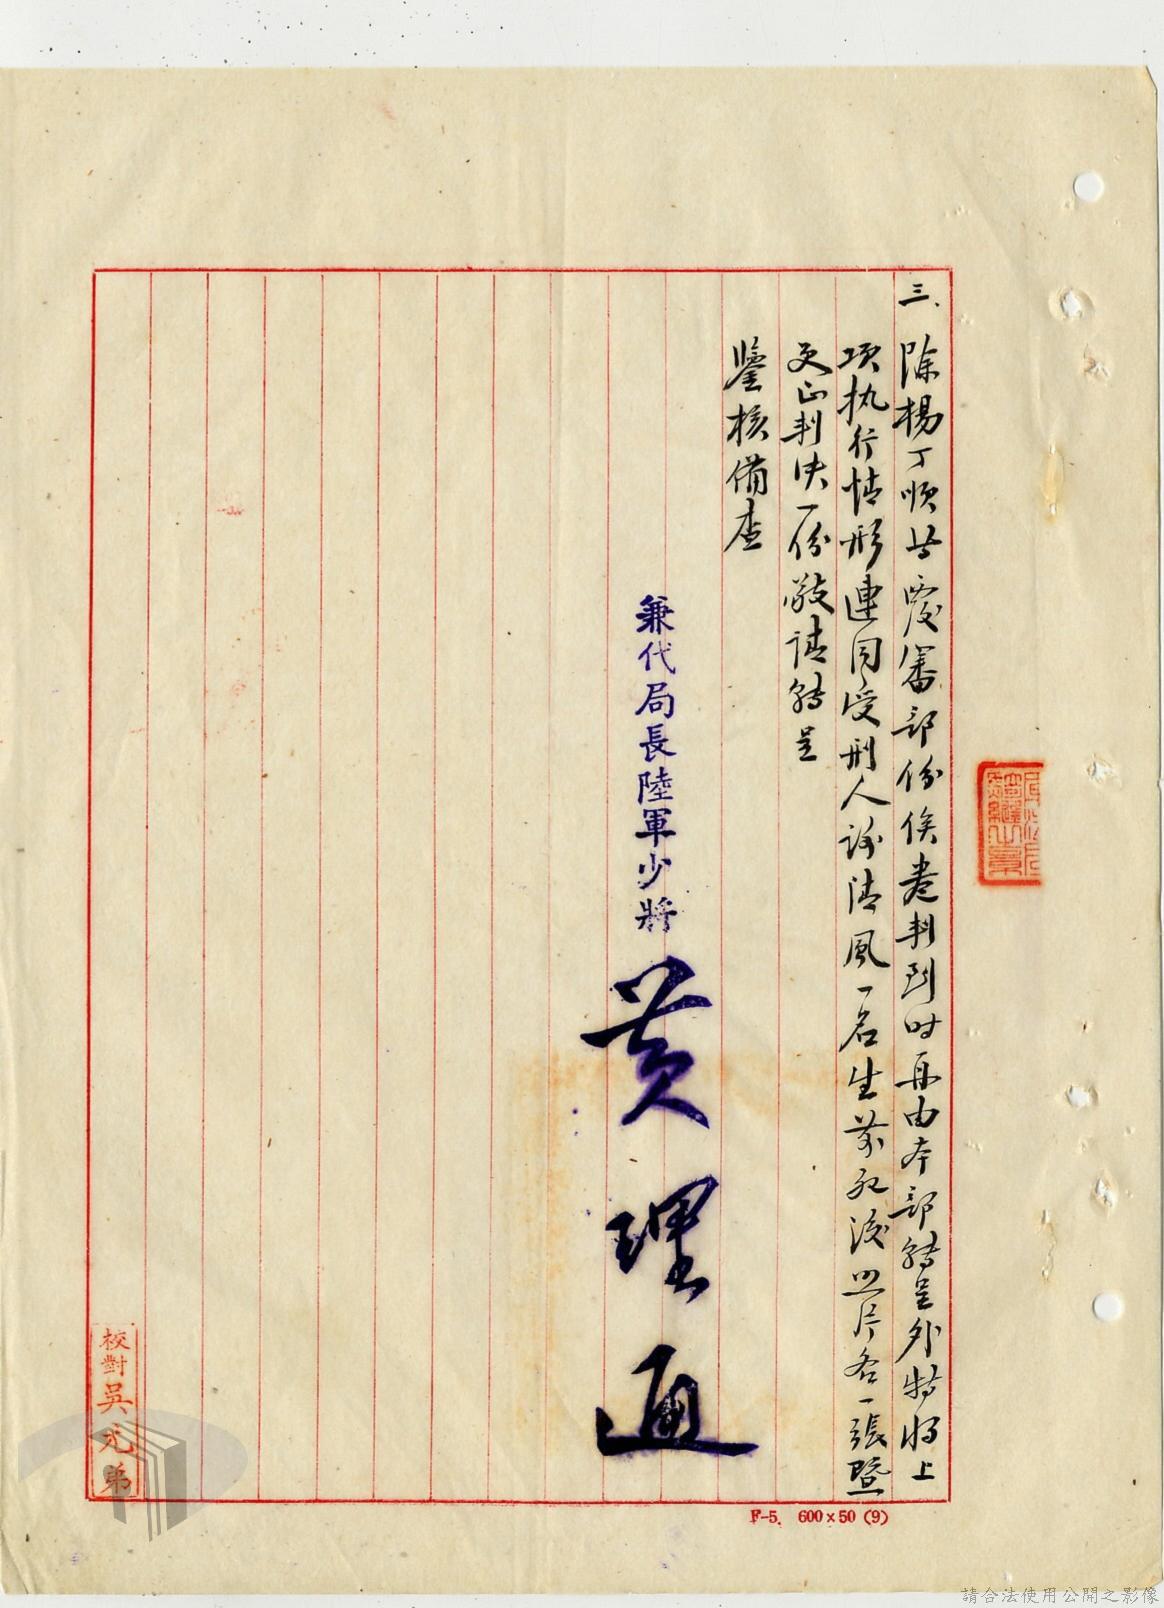 三、除楊丁順等覆審部份俟卷判到時再由本部轉呈外特將上
項執行情形連同受刑人許清風一名生前死後照片各一張暨
更正判決一份敬請轉呈
鑒核備查
兼代局長陸軍少將 黃理通
校對吳元弟
F-5. 600×50(9)
請合法使用公開之影像